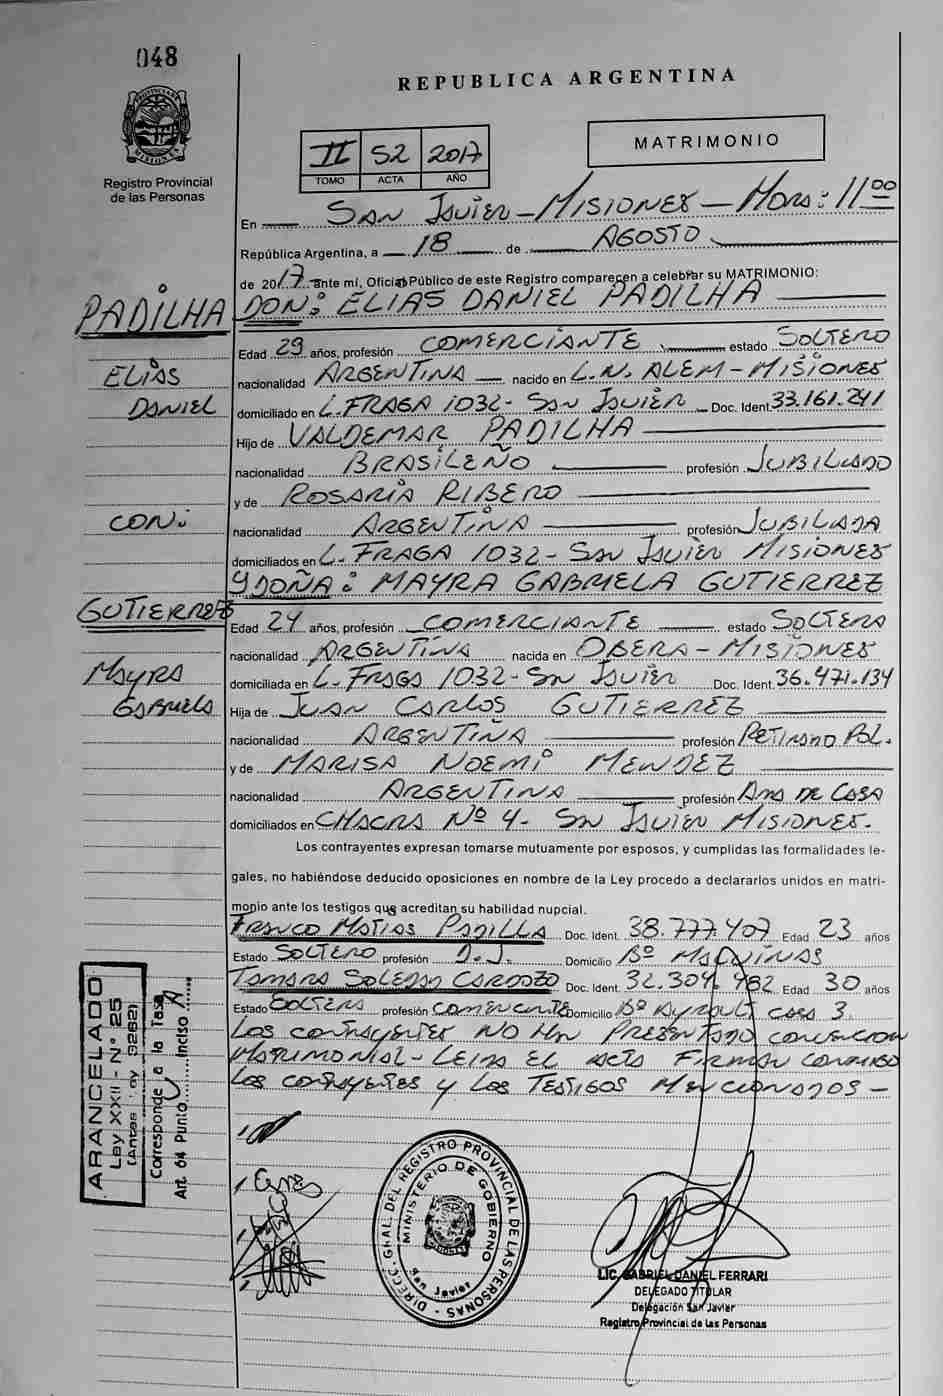 048
REPUBLICA ARGENTINA
PROVINCIA DE MISIONES
Registro Provincial
de las Personas
II 52 2017
TOMO ACTA AÑO
MATRIMONIO
En SAN JAVIER - MISIONES - HORA: 11 00
República Argentina, a 18 de AGOSTO
de 2017 ante mí, Oficial Público de este Registro comparecen a celebrar su MATRIMONIO:
PADILHA
DON: ELIAS DANIEL PADILHA
Edad 29 años, profesión COMERCIANTE estado SOLTERO
ELIAS
nacionalidad ARGENTINA nacido en L.N. ALEM - MISIONES
DANIEL
domiciliado en L. FRAGA 1032 - SAN JAVIER Doc. Ident. 33.161.241
Hijo de VALDEMAR PADILHA
nacionalidad BRASILEÑO profesión JUBILADO
y de ROSARIA RIBERO
CON:
nacionalidad ARGENTINA profesión JUBILADA
domiciliados en L. FRAGA 1032 - SAN JAVIER MISIONES
Y DOÑA: MAYRA GABRIELA GUTIERREZ
GUTIERREZ
Edad 24 años, profesión COMERCIANTE estado SOLTERA
nacionalidad ARGENTINA nacida en OBERA - MISIONES
MAYRA
domiciliada en L. FRAGA 1032 - SAN JAVIER Doc. Ident. 36.471.134
GABRIELA
Hija de JUAN CARLOS GUTIERREZ
nacionalidad ARGENTINA profesión RETIRADO POL.
y de MARISA NOEMI MENDEZ
nacionalidad ARGENTINA profesión AMA DE CASA
domiciliados en CHACRA Nº 4 - SAN JAVIER MISIONES.
Los contrayentes expresan tomarse mutuamente por esposos, y cumplidas las formalidades le-
gales, no habiéndose deducido oposiciones en nombre de la Ley procedo a declararlos unidos en matri-
monio ante los testigos que acreditan su habilidad nupcial.
FRANCO MATIAS PADILLA Doc. Ident. 38.777.407 Edad 23 años
Estado SOLTERO profesión D.J. Domicilio Bº MAQUINAS
TAMARA SOLEDAD CARDOZO Doc. Ident. 32.304.482 Edad 30 años
Estado SOLTERA profesión COMERCIANTE Domicilio Bº AYRAULT CASA 3.
LOS CONTRAYENTES NO HAN PRESENTADO CONVENCION
MATRIMONIAL - LEIDA EL ACTA FIRMAN CONMIGO
LOS CONTRAYENTES Y LOS TESTIGOS MENCIONADOS -
ARANCELADO
Ley XXII - Nº 25
(Antes Ley 3262)
Corresponde a la Tasa
Art. 64 Punto Inciso A
DIRECC. GRAL. DEL REGISTRO PROVINCIAL DE LAS PERSONAS
MINISTERIO DE GOBIERNO
San Javier
LIC. GABRIEL DANIEL FERRARI
DELEGADO TITULAR
Delegación San Javier
Registro Provincial de las Personas